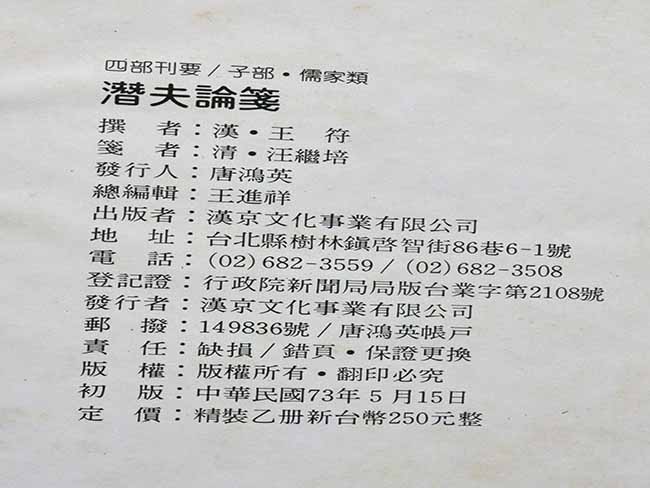 四部刊要/子部·儒家類
潛夫論箋
撰 者：漢·王 符
箋 者：清·汪繼培
發行人：唐鴻英
總編輯：王進祥
出版者：漢京文化事業有限公司
地 址：台北縣樹林鎮啓智街86巷6-1號
電 話：(02)682-3559/(02)682-3508
登記證：行政院新聞局局版台業字第2108號
發行者：漢京文化事業有限公司
郵 撥：149836號/唐鴻英帳戶
責 任：缺損/錯頁·保證更換
版 權：版權所有·翻印必究
初 版：中華民國73年5月15日
定 價：精裝乙册新台幣250元整